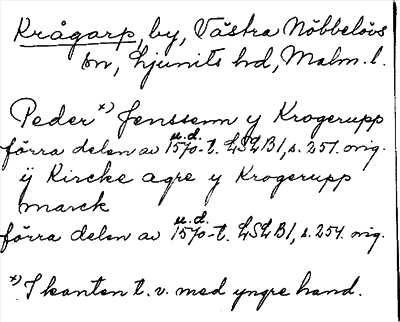 Krågarp, by, Västra Nöbbelövs
sn, Ljunits hd, Malm. l.
Peder *) Jenssenn y Krogerupp
u. d.
förra delen av 1570-t. LSLB1, s. 251. orig.
ij Kircke agre y Krogerupp
marck
u. d.
förra delen av 1570-t. LSLB1, s. 254. orig.
*) I kanten t. v. med yngre hand.